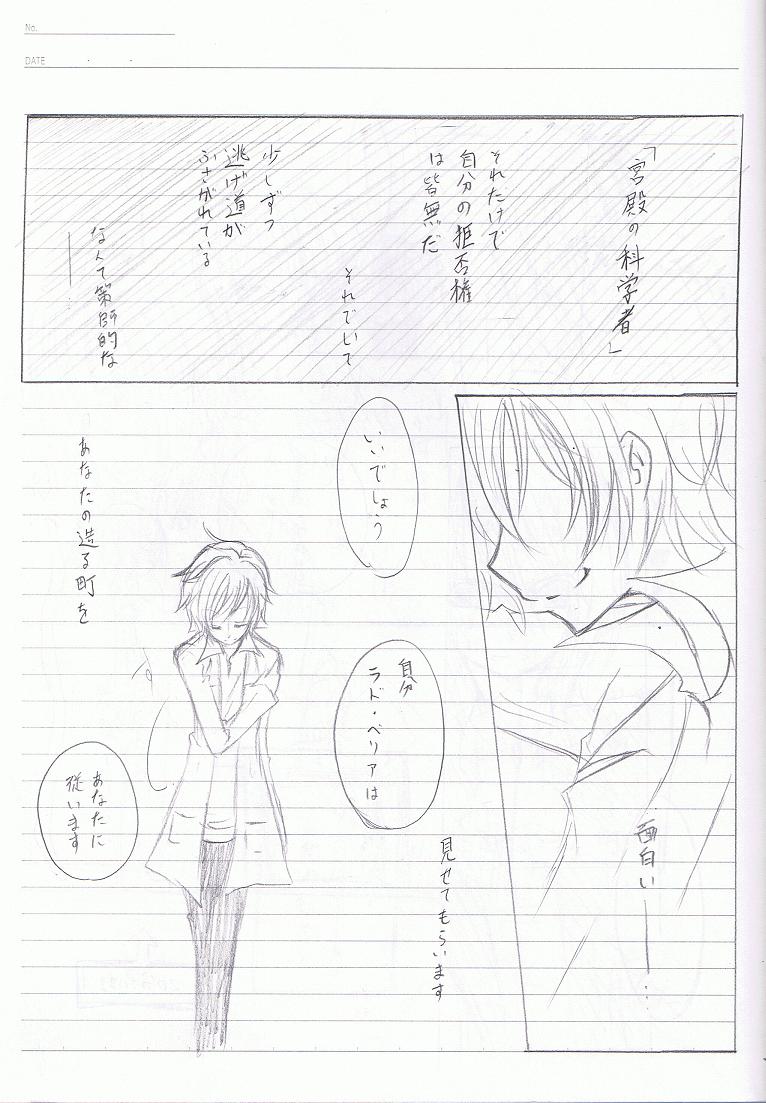 No.
DATE
「宮殿の科学者」
それたけで
自分の拒否権
は皆無だ
それでいて
少しずつ
逃げ道が
ふさがれている
なんて策師的な
――…
面白い――…
いいでしょう
自分
ラド・ベリアは
見せてもらいます
あなたの造る町を
す
あなたに
従います